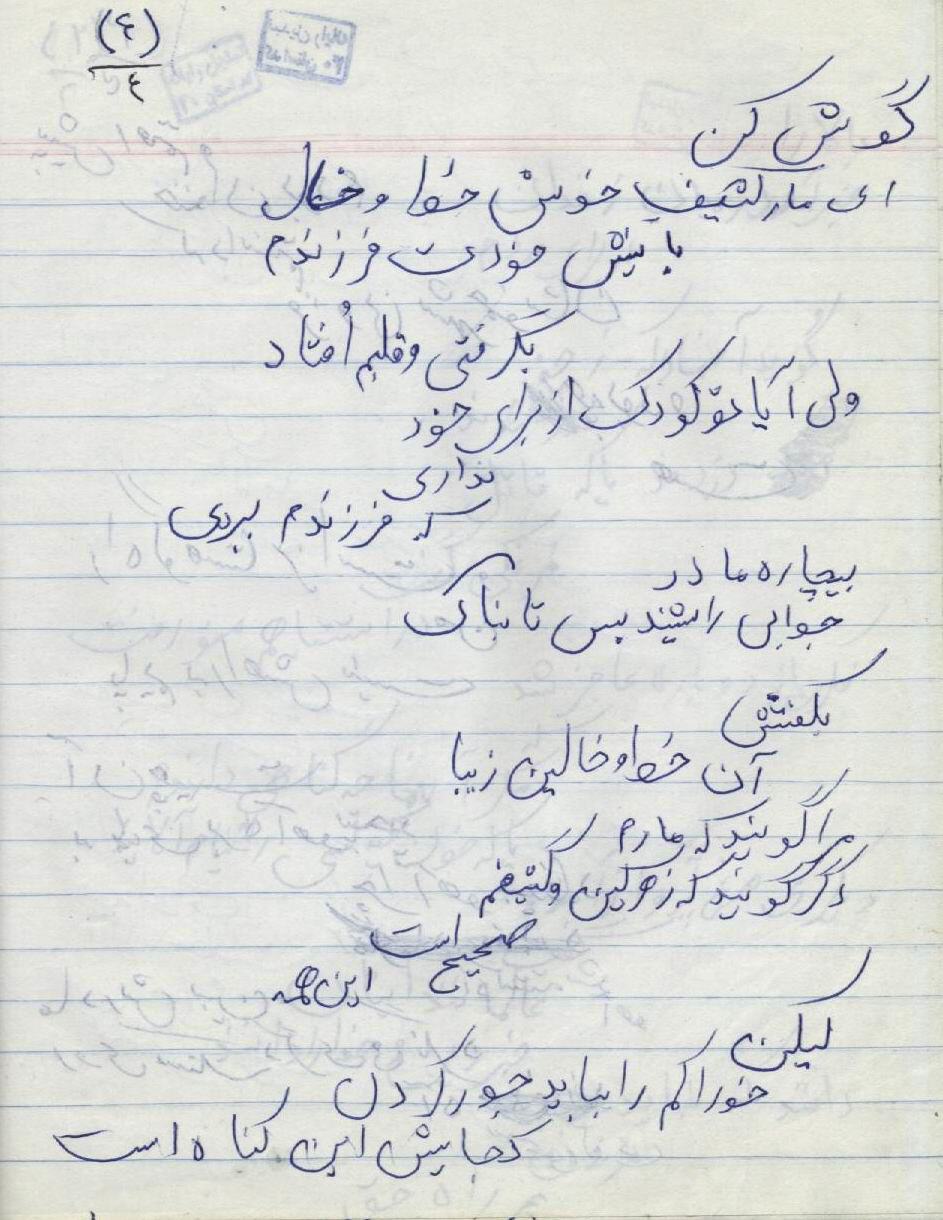 (٤)
٤
گوش کن
ای مار کثیف خوش خط و خال
با نیش خودت فرزندم
بگرفتی و قلبم اُفتاد
ولی آیا تو کودک از برای خود
نداری
که فرزندم ببردی
بیچاره مادر
جوابی را شنید بس تابناک
بگفتش
آن خط و خالین زیبا
مرا گویند که مارم
دگر گویند که زهرگین و کثیفم
صحیح است
این همه
لیکن
خوراکم را بباید جور کردن
کجایش این گناه است